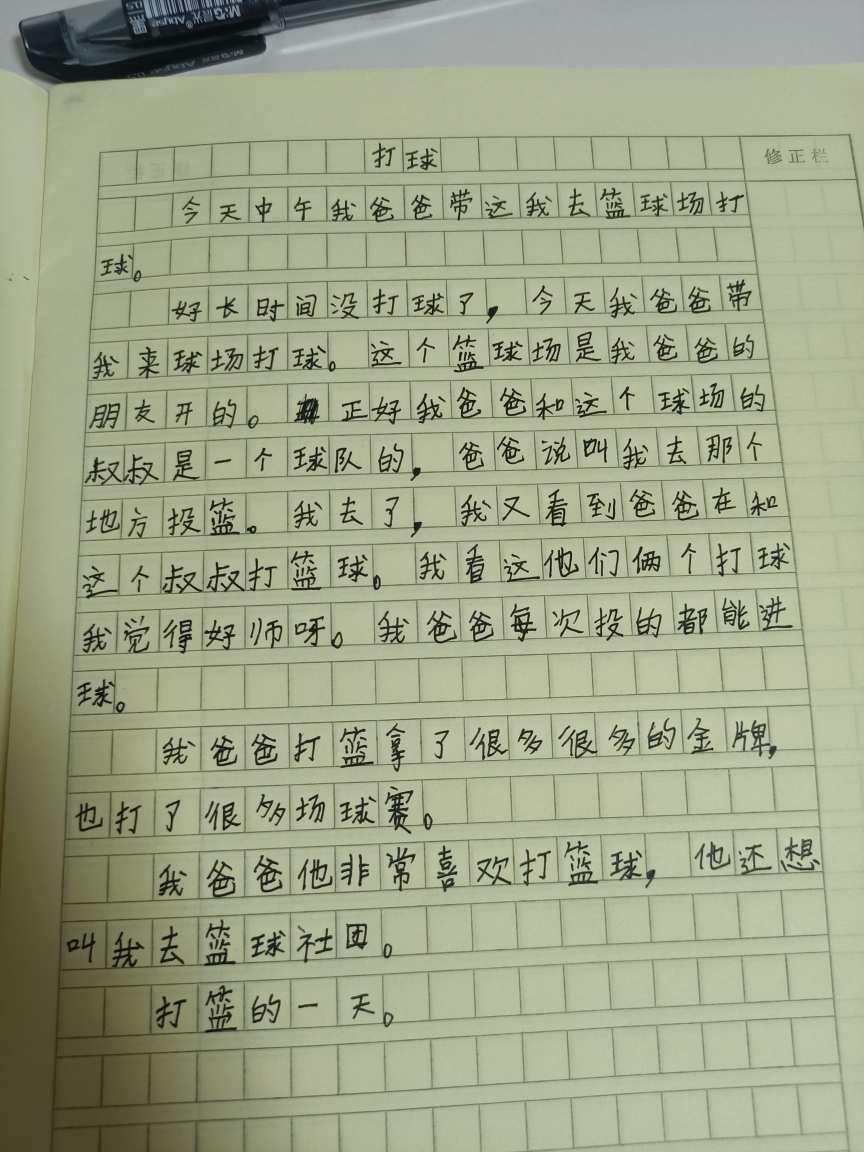 M&G晨光®
0.5 黑
打球
修正栏
今天中午我爸爸带这我去篮球场打
球。
好长时间没打球了，今天我爸爸带
我来球场打球。这个篮球场是我爸爸的
朋友开的。正好我爸爸和这个球场的
叔叔是一个球队的，爸爸说叫我去那个
地方投篮。我去了，我又看到爸爸在和
这个叔叔打篮球。我看这他们俩个打球
我觉得好师呀。我爸爸每次投的都能进
球。
我爸爸打篮拿了很多很多的金牌，
也打了很多场球赛。
我爸爸他非常喜欢打篮球，他还想
叫我去篮球社团。
打篮的一天。